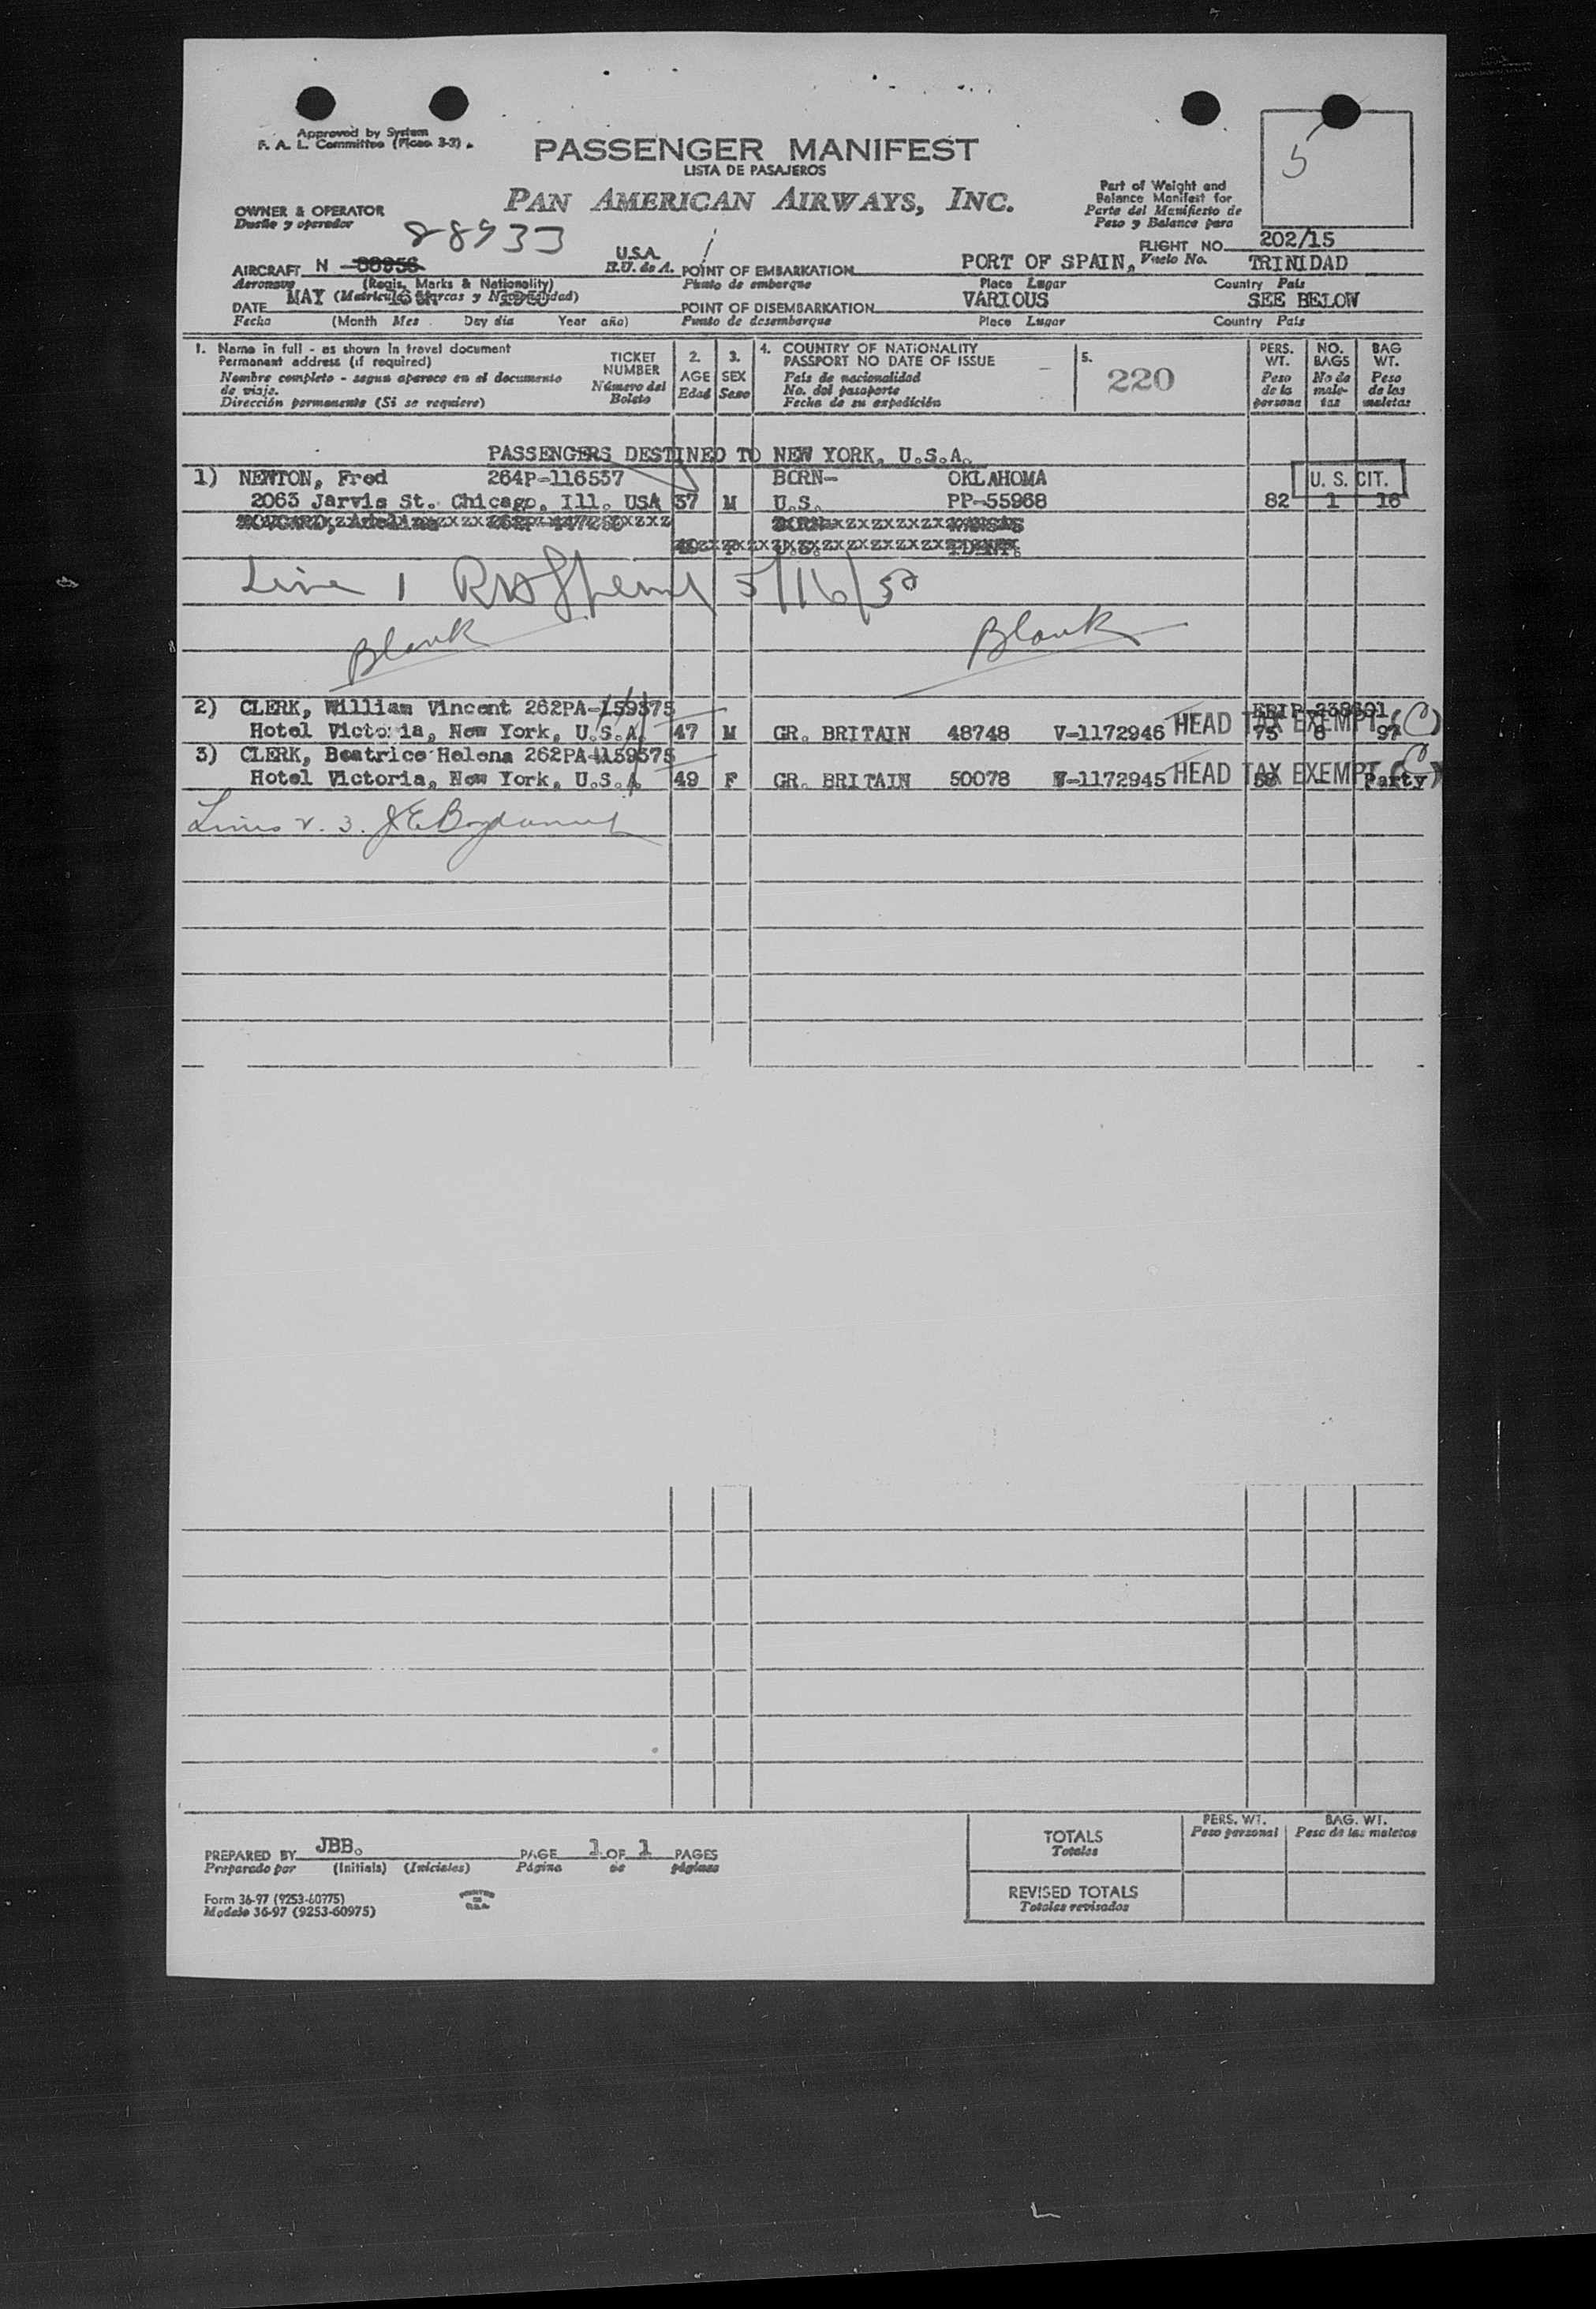 5
Approved by System
F. A. L. Committee (Picao 3-2)
PASSENGER MANIFEST
LISTA DE PASAJEROS
PAN AMERICAN AIRWAYS, INC.
Part of Weight and
Balance Manifest for
Parte del Manifiesto de
Peso y Balance para
OWNER & OPERATOR
Dueño y operador
28933
FLIGHT NO. 202/15
Vuelo No.
AIRCRAFT N
Aeronave
(Regis. Marks & Nationality)
(Matricula Marcas y Nacionalidad)
U.S.A.
R.U. de A.
POINT OF EMBARKATION PORT OF SPAIN, TRINIDAD
Punto de embarque Place Lugar Country País
DATE MAY
Fecha (Month Mes Day día Year año)
POINT OF DISEMBARKATION VARIOUS SEE BELOW
Punto de desembarque Place Lugar Country País
1. Name in full - as shown in travel document
Permanent address (if required)
Nombre completo - segun aparece en el documento
de viaje.
Dirección permanente (Si se requiere)
TICKET
NUMBER
Número del
Boleto
2.
AGE
Edad
3.
SEX
Sexo
4. COUNTRY OF NATIONALITY
PASSPORT NO DATE OF ISSUE
País de nacionalidad
No. del pasaporte
Fecha de su expedición
5.
220
PERS.
WT.
Peso
de la
persona
NO.
BAGS
No de
male-
tas
BAG
WT.
Peso
de las
maletas
PASSENGERS DESTINED TO NEW YORK, U.S.A.
1) NEWTON, Fred 264P-116537 BORN- OKLAHOMA U. S. CIT.
2063 Jarvis St. Chicago, Ill. USA 37 M U.S. PP-55968 82 1 16
Line 1 5/16/50
Blank Blank
2) CLERK, William Vincent 262PA-159375
Hotel Victoria, New York, U.S.A. 47 M GR. BRITAIN 48748 V-1172946 HEAD TAX EXEMPT (C) 75 6 97
3) CLERK, Beatrice Helena 262PA-159375
Hotel Victoria, New York, U.S.A 49 F GR. BRITAIN 50078 V-1172945 HEAD TAX EXEMPT (C) Party
Lines 2. 3.
PREPARED BY JBB.
Preparado por (Initials) (Iniciales)
PAGE 1 OF 1 PAGES
Página de páginas
Form 36-97 (9253-60975)
Modelo 36-97 (9253-60975)
PRINTED
IN
U.S.A.
PERS. WT.
Peso personal
BAG. WT.
Peso de las maletas
TOTALS
Totales
REVISED TOTALS
Totales revisados